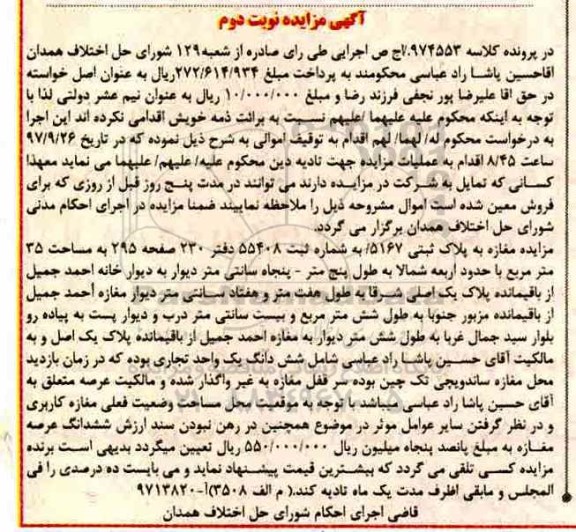 آگهی مزایده نوبت دوم
در پرونده کلاسه ۹۷۴۵۵۳./اج ص اجرایی طی رای صادره از شعبه۱۲۹ شورای حل اختلاف همدان
اقاحسین پاشا راد عباسی محکومند به پرداخت مبلغ ۲۷۲/۶۱۴/۹۳۴ریال به عنوان اصل خواسته
در حق اقا علیرضا پور نجفی فرزند رضا و مبلغ ۱۰/۰۰۰/۰۰۰ ریال به عنوان نیم عشر دولتی لذا با
توجه به اینکه محکوم علیه علیهما /علیهم نسبت به برائت ذمه خویش اقدامی نکرده اند این اجرا
به درخواست محکوم له/ لهما/ لهم اقدام به توقیف اموالی به شرح ذیل نموده که در تاریخ ۹۷/۹/۲۶
ساعت ۸/۴۵ اقدام به عملیات مزایده جهت تادیه دین محکوم علیه/ علیهم/ علیهما می نماید معهذا
کسانی که تمایل به شرکت در مزایده دارند می توانند در مدت پنج روز قبل از روزی که برای
فروش معین شده است اموال مشروحه ذیل را ملاحظه نماییند ضمنا مزایده در اجرای احکام مدنی
شورای حل اختلاف همدان برگزار می گردد.
مزایده مغازه به پلاک ثبتی ۵۱۶۷/ به شماره ثبت ۵۵۴۰۸ دفتر ۲۳۰ صفحه ۲۹۵ به مساحت ۳۵
متر مربع با حدود اربعه شمالا به طول پنج متر - پنجاه سانتی متر دیوار به دیوار خانه احمد جمیل
از باقیمانده پلاک یک اصلی شرقا به طول هفت متر و هفتاد سانتی متر دیوار مغازه أحمد جمیل
از باقیمانده مزبور جنوبا به طول شش متر مربع و بیست سانتی متر درب و دیوار پست به پیاده رو
بلوار سید جمال غربا به طول شش متر دیوار به مغازه احمد جمیل از باقیمانده پلاک یک اصل و به
مالکیت آقای حسین پاشا راد عباسی شامل شش دانگ یک واحد تجاری بوده که در زمان بازدید
محل مغازه ساندویجی تک چین بوده سر قفل مغازه به غیر واگذار شده و مالکیت عرصه متعلق به
آقای حسین پاشا راد عباسی میباشد با توجه به موقعیت محل مساحت وضعیت فعلی مغازه کاربری
و در نظر گرفتن سایر عوامل موثر در موضوع همچنین در رهن نبودن سند ارزش ششدانگ عرصه
مغازه به مبلغ پانصد پنجاه میلیون ریال ۵۵۰/۰۰۰/۰۰۰ ریال تعیین میگردد بدیهی است برنده
مزایده کسی تلقی می گردد که بیشترین قیمت پیشنهاد نماید و می بایست ده درصدی را فی
المجلس و مابقی اظرف مدت یک ماه تادیه کند.( م الف ۳۵۰۸)أ-۹۷۱۳۸۲۰
قاضی اجرای احکام شورای حل اختلاف همدان